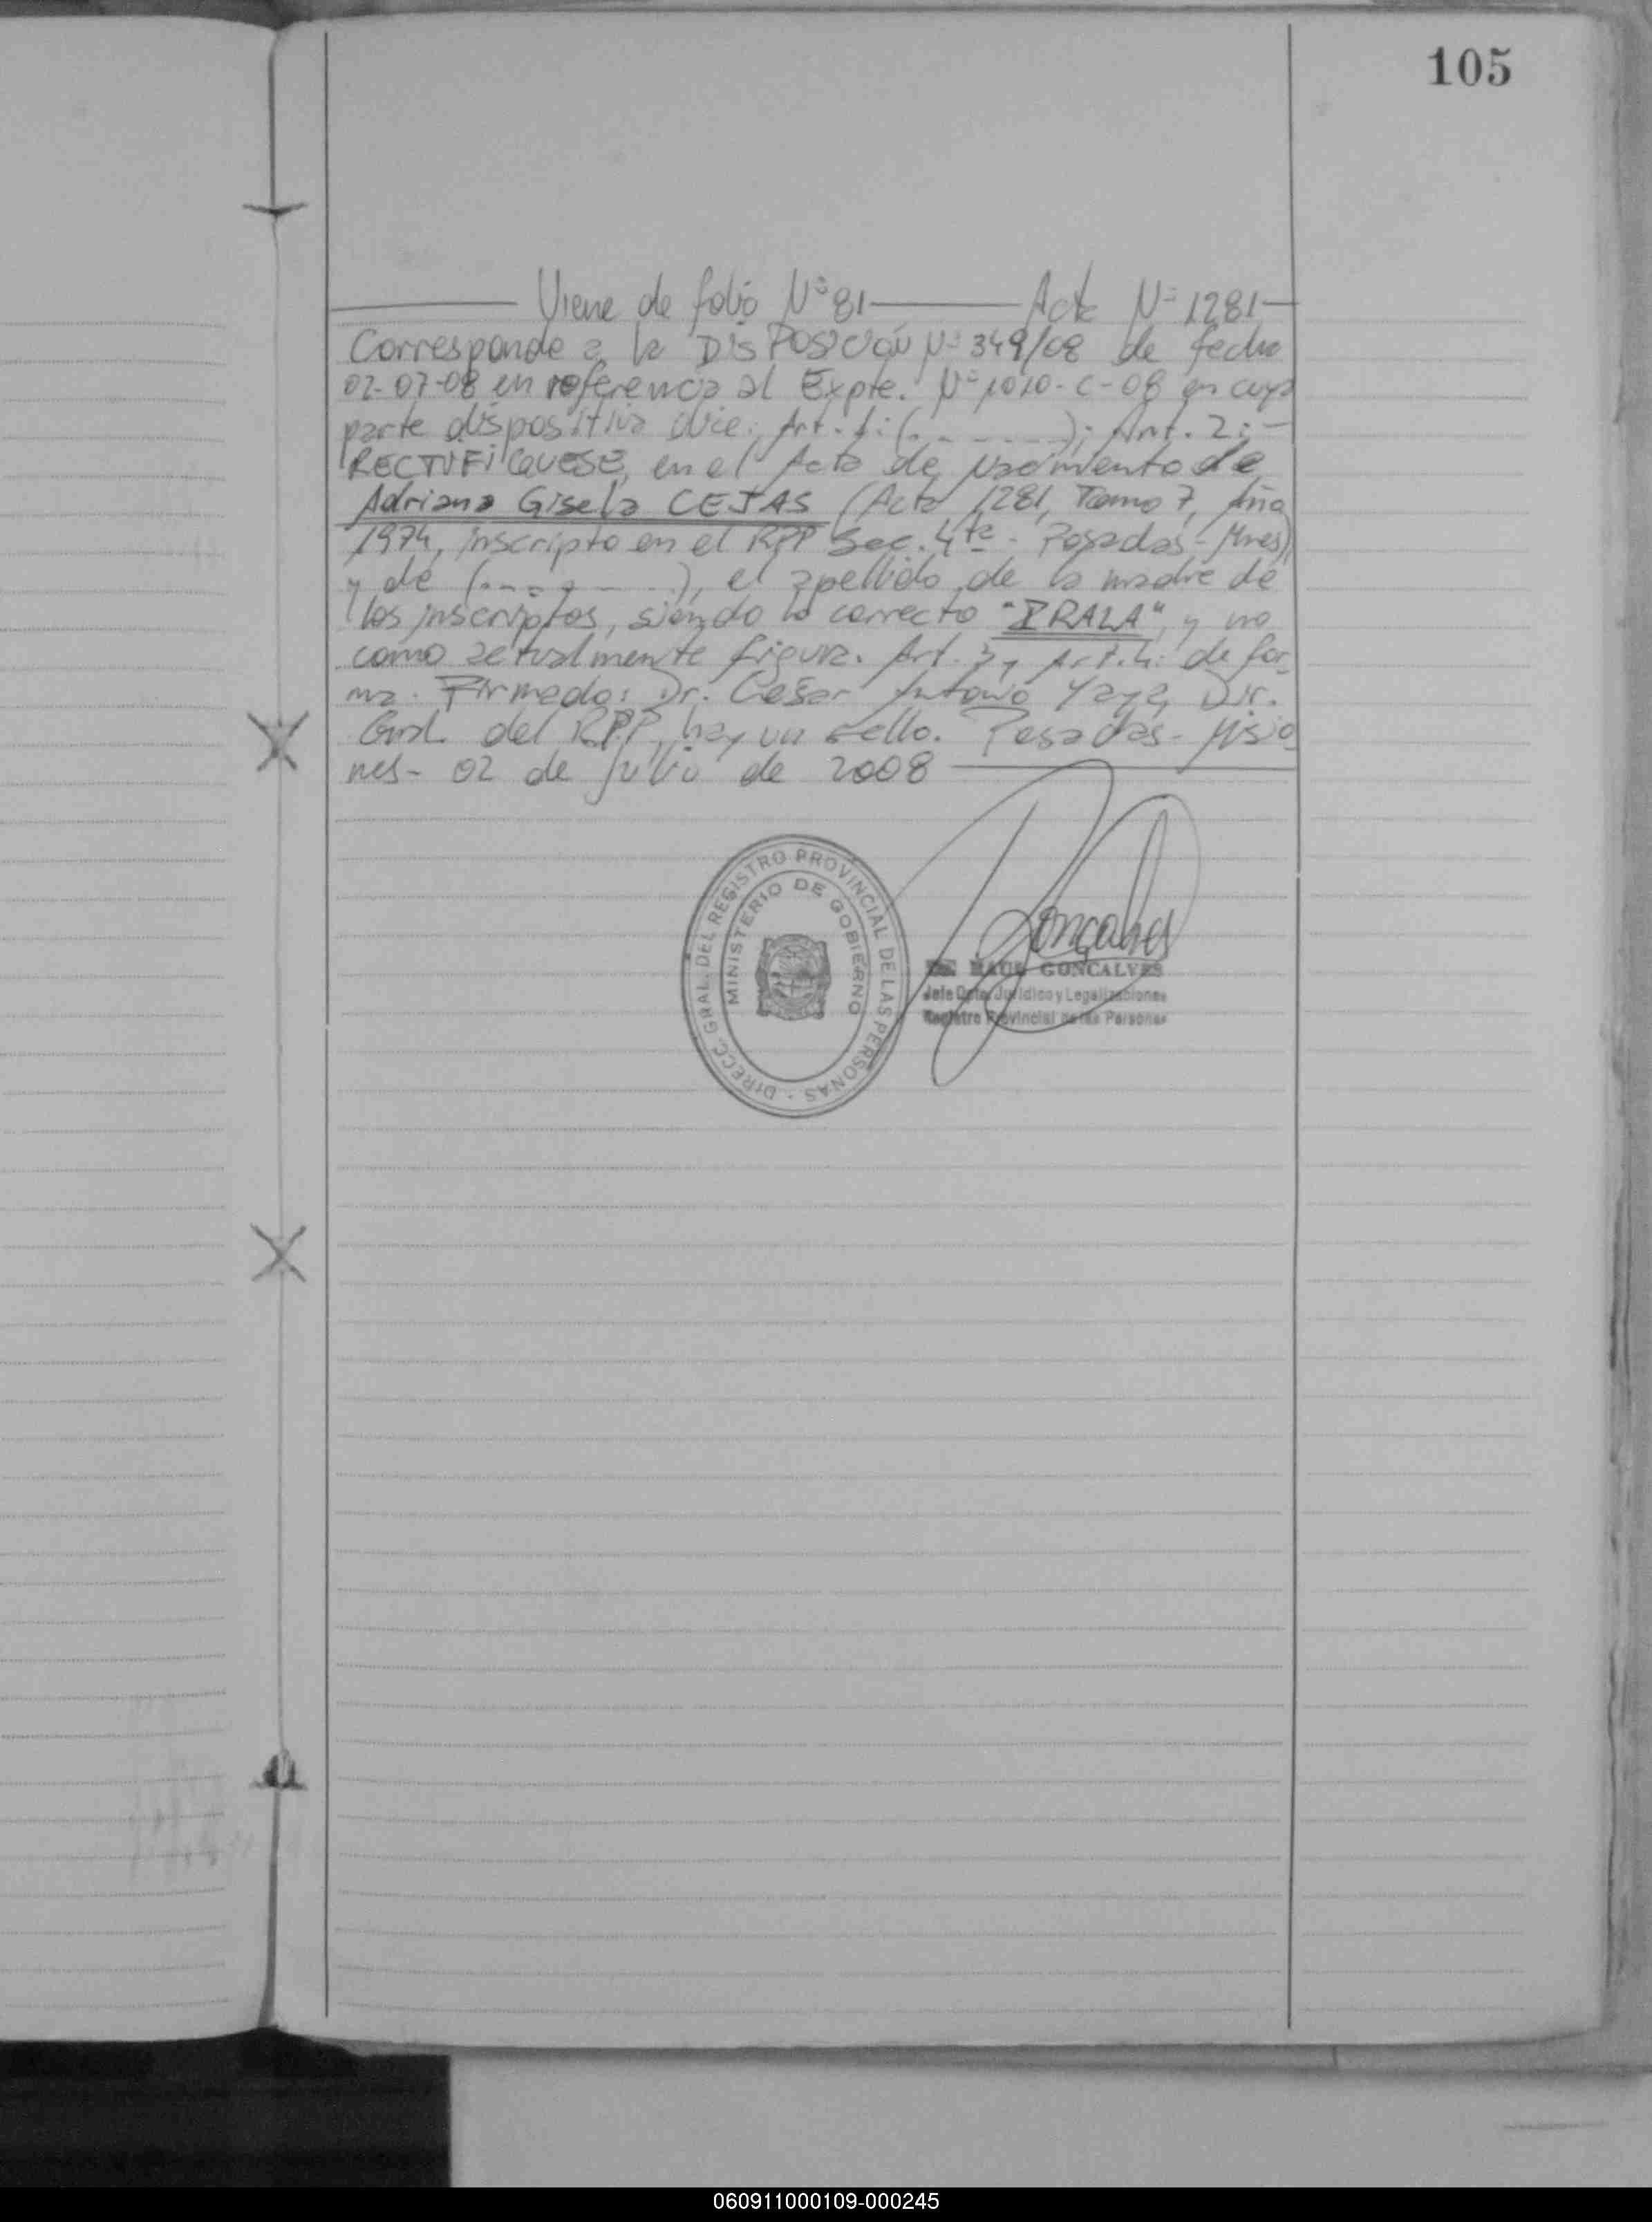 105
Viene de folio Nº 81 — Acta Nº 1281 —
Corresponde a la DISPOSICIÓN Nº 349/08 de fecha
02-07-08 en referencia al Expte. Nº 1010-C-08 en cuya
parte dispositiva dice: Art. 1: (. _ _ _ _); Art. 2: -
RECTIFIQUESE, en el Acta de Nacimiento de
Adriana Gisela CEJAS (Acta 1281, Tomo 7, Año
1974, inscripto en el RPP Sec. 4ta - Posadas - Mnes)
y de (. _ _ _ _ _ .), el apellido de la madre de
los inscriptos, siendo lo correcto "IRALA", y no
como actualmente figura. Art. 3 y Art. 4: de for-
ma. Firmado: Dr. Cesar Antonio Yaya, Dir.
Gral. del RPP, hay un sello. Posadas - Misio
nes - 02 de Julio de 2008
DIRECC. GRAL. DEL REGISTRO PROVINCIAL DE LAS PERSONAS -
MINISTERIO DE GOBIERNO
Gonçalves
RAUL GONCALVES
Jefe Dpto. Jurídico y Legalizaciones
Registro Provincial de las Personas
060911000109-000245